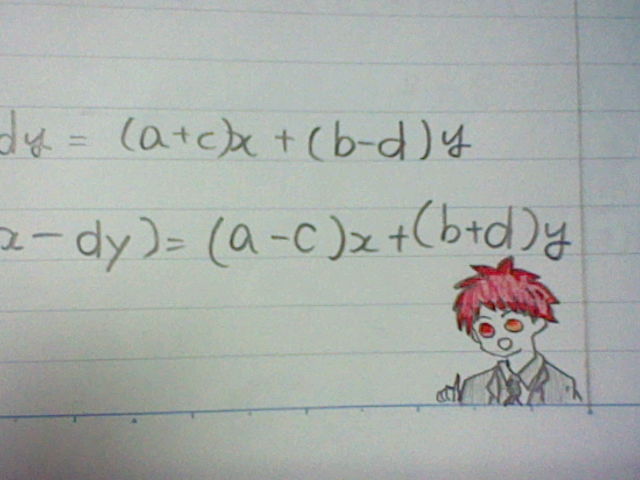 dy = (a+c)x + (b-d)y
x - dy) = (a-c)x + (b+d)y